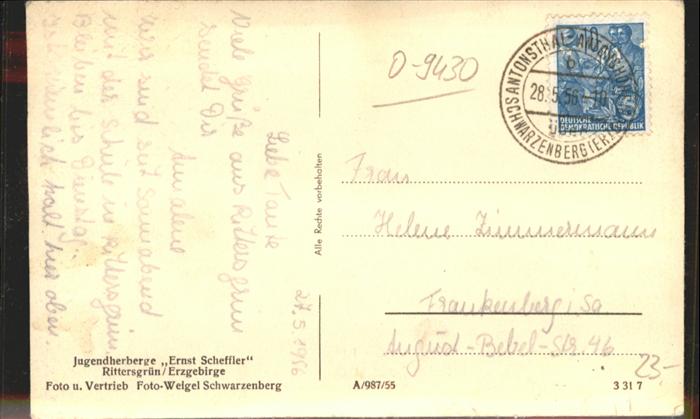 27.5.1956
Liebe Tante
Viele Grüße aus Rittersgrün
sendet Dir
Annaliese
Wir sind seit Sonnabend
mit der Schule in Rittersgrün
Bleiben bis Dienstag.
Ist ziemlich kalt hier oben.
Jugendherberge „Ernst Scheffler"
Rittersgrün/Erzgebirge
Foto u. Vertrieb Foto-Weigel Schwarzenberg
Alle Rechte vorbehalten
O-9430
ANTONSTHAL
28.5.56
SCHWARZENBERG (ERZ
DEUTSCHE
DEMOKRATISCHE REPUBLIK
Frau
Helene Zimmermann
Frankenberg i, Sa
August-Bebel-Str. 46
23-
A/987/55
3 31 7